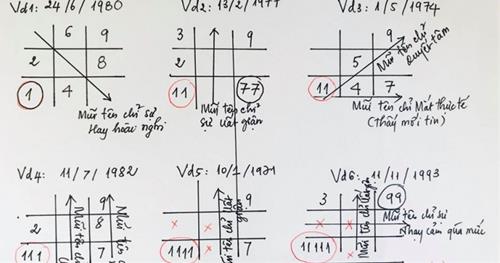 Vd1: 24/6/1980
6 9
2 8
1 4
Mũi tên chỉ sự
Hay hoài nghi
Vd2: 13/2/1977
3 9
2
11 77
Mũi tên chỉ
sự uất giận
Vd3: 1/5/1974
9
5
11 4 7
Mũi tên chỉ
Quyết tâm
Mũi tên chỉ Mất thực tế
(Thấy mới tin)
Vd4: 11/7/1982
9
2 8
111 7
Mũi tên
Mũi tên
Vd5: 10/1/1971
9
1111 7
Mũi tên chỉ Uất
giận
Vd6: 11/11/1993
3 99
11111
Mũi tên chỉ
Mũi tên chỉ sự
nhạy cảm quá mức